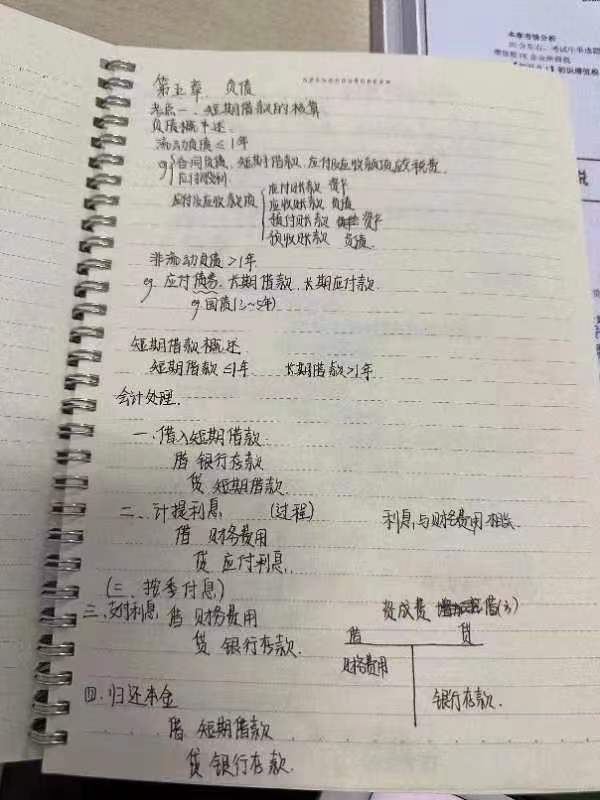 第五章 负债
考点一、短期借款的核算
负债概述
流动负债≤1年
eg 合同负债、短期借款、应付及应收款项应交税费
应付股利
应付及应收款项
应付账款 资产
应收账款 负债
预付账款 资产
预收账款 负债
非流动负债>1年
eg 应付债券、长期借款、长期应付款
eg国债(3~5年)
短期借款概述
短期借款≤1年 长期借款>1年
会计处理
一、借入短期借款
借 银行存款
贷 短期借款
二、计提利息 (过程) 利息与财务费用相关
借 财务费用
贷 应付利息
(三、按季付息)
三、支付利息 借 财务费用
贷 银行存款
借 贷
财务费用
银行存款
四、归还本金
借 短期借款
贷 银行存款
本章考情分析